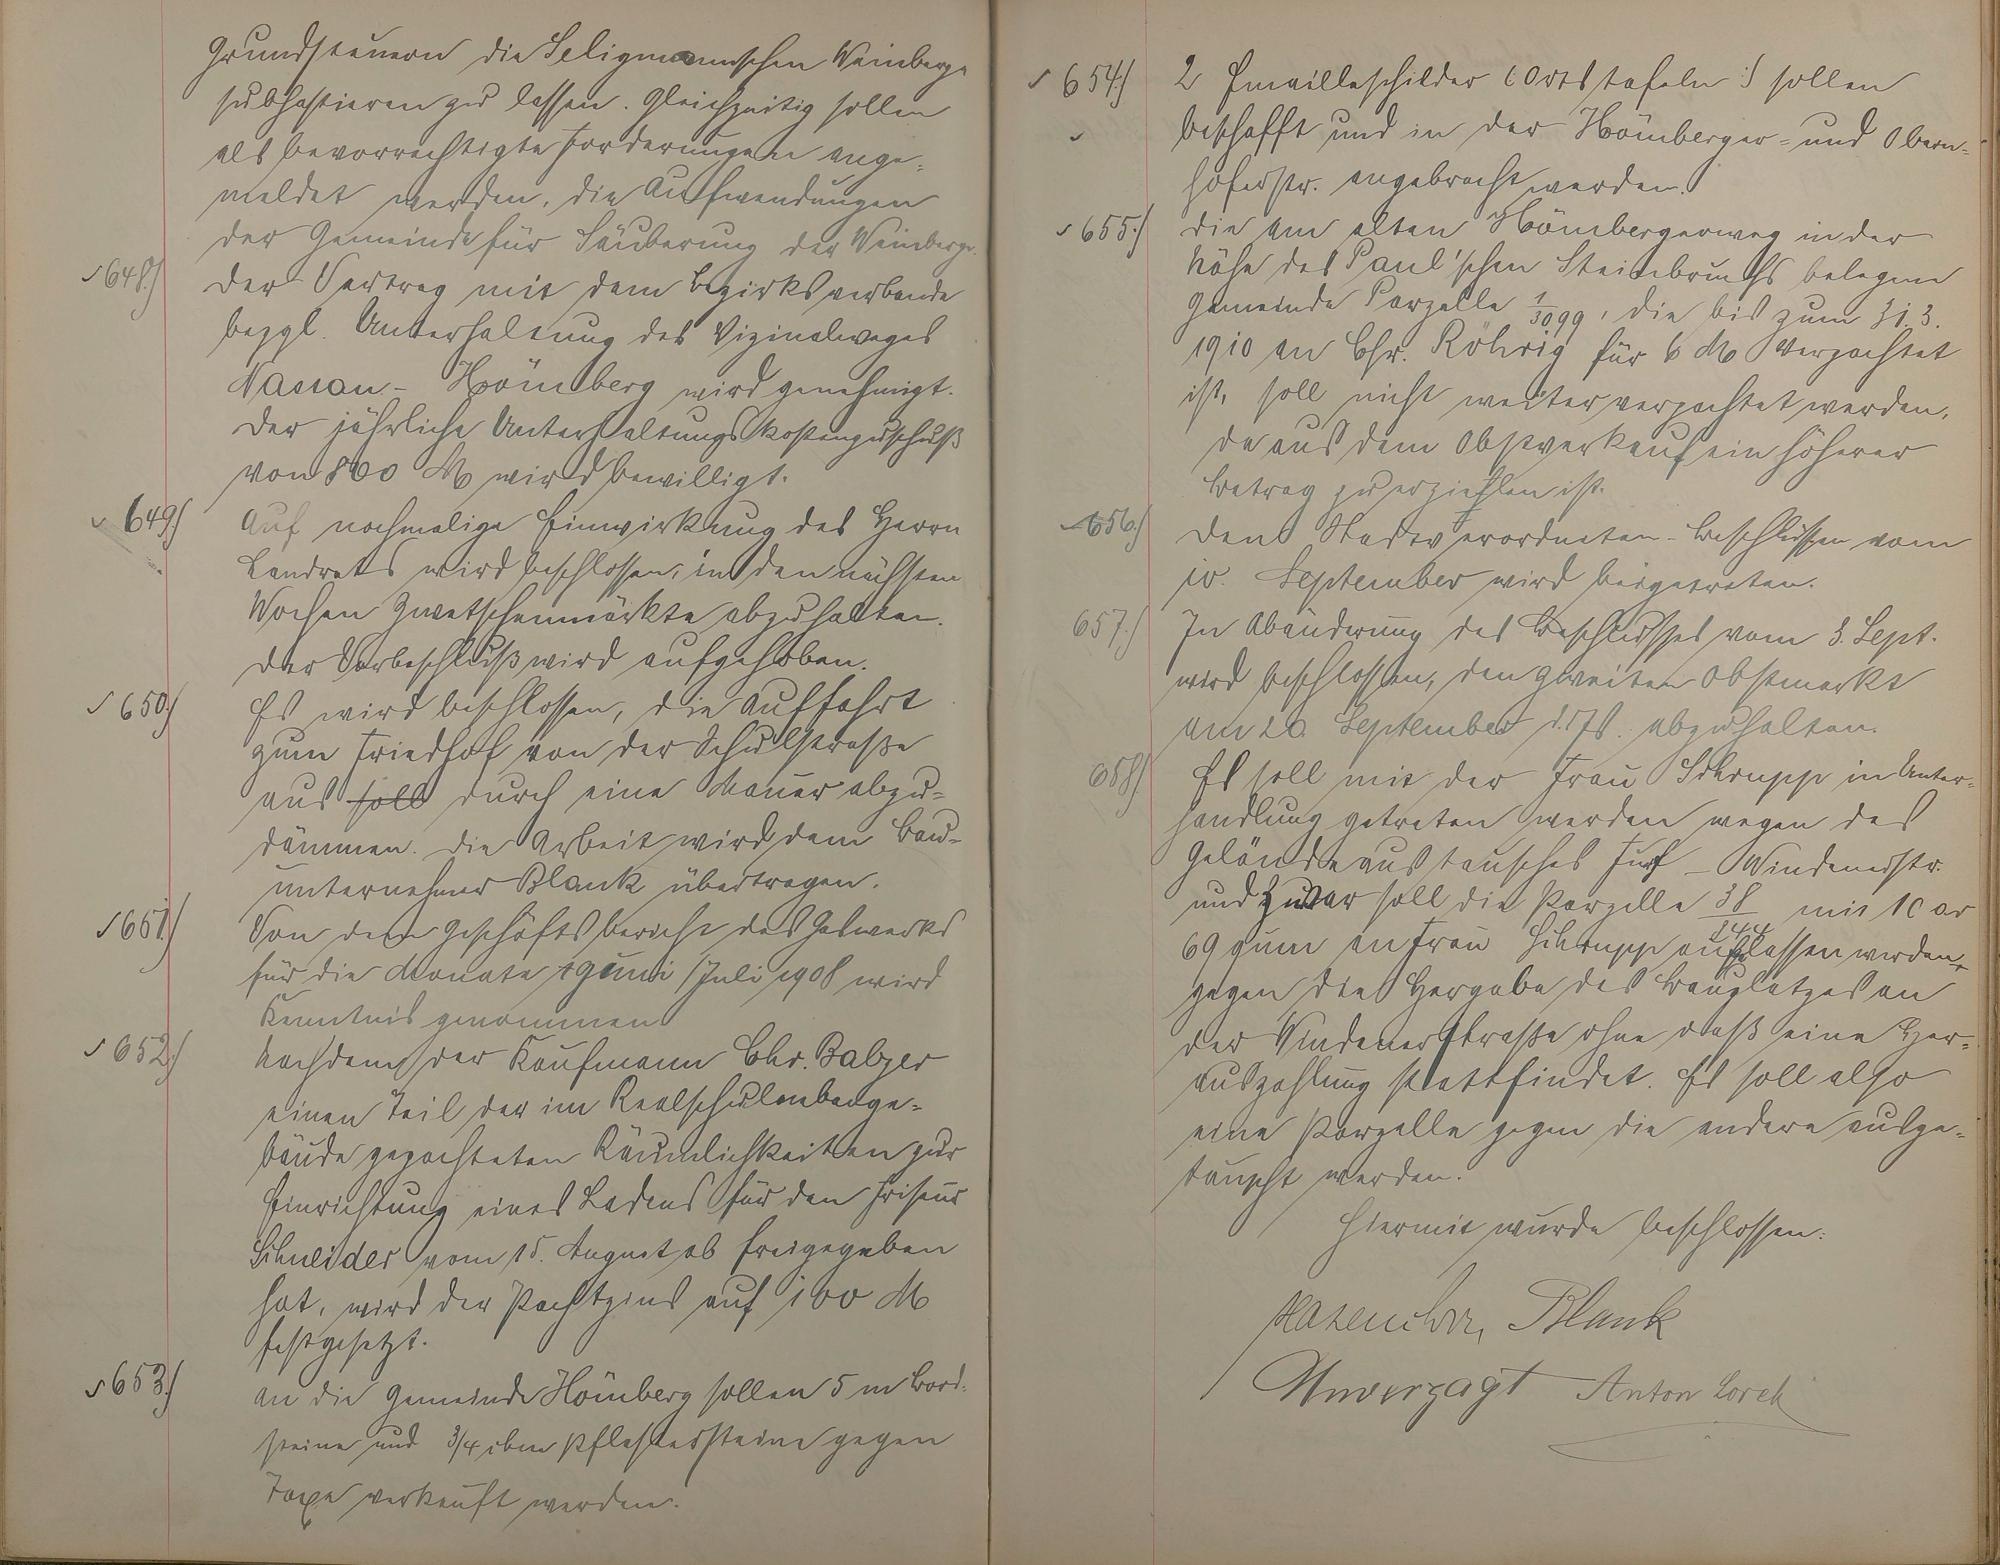 Grundsteuern die Seligmannschen Weinberge
subhastieren zu lassen. Gleichzeitig sollen
als bevorrechtigte Forderungen ange-
meldet werden, die Aufwendungen
der Gemeinde für Säuberung der Weinberge.
648.) Der Vertrag mit dem Bezirksverbande
bezgl. Unterhaltung des Vizinalweges
Nassau - Hömberg wird genehmigt.
Der jährliche Unterhaltungskostenzuschuß
von 800 M wird bewilligt.
649.) Auf nochmalige Einwirkung des Herrn
Landrats wird beschlossen, in den nächsten
Wochen Zwetschenmärkte abzuhalten.
Der Vorbeschluß wird aufgehoben.
650.) Es wird beschlossen, die Auffahrt
zum Friedhof von der Schulstraße
aus soll durch eine Mauer abzu-
dämmen. Die Arbeit wird dem Bau-
unternehmer Blank übertragen.
651.) Von dem Geschäftsbericht des Gaswerks
für die Monate Juni / Juli 1908 wird
Kenntnis genommen
652.) Nachdem der Kaufmann Chr. Balzer
einen Teil der im Realschulnebenge-
bäude gepachteten Räumlichkeiten zur
Einrichtung eines Ladens für den Friseur
Schneider vom 15. August ab freigegeben
hat, wird der Pachtzins auf 100 M
festgesetzt.
653.) An die Gemeinde Hömberg sollen 5 m Bord-
steine und 3/4 cbm Pflastersteine gegen
Taxe verkauft werden.
654.) 2 Emailleschilder (: Ortstafeln :) sollen
beschafft und in der Hömberger- und Obern-
hoferstr. angebracht werden.
655.) Die am alten Hömbergerweg in der
Nähe des Paul'schen Steinbruchs belegene
Gemeinde Parzelle 1/3099, die bis zum 31.3.
1910 an Chr. Röhrig für 6 M verpachtet
ist, soll nicht weiter verpachtet werden,
da aus dem Obstverkauf ein höherer
Betrag zu erziehlen ist.
656.) Den Stadtverordneten-Beschlüssen vom
10. September wird beigetreten.
657.) In Abänderung des Beschlusses vom 3. Sept.
wird beschlossen, den zweiten Obstmarkt
am 26. September d. Js. abzuhalten.
658.) Es soll mit der Frau Schrupp in Unter-
handlung getreten werden wegen des
Geländeaustausches - Windenerstr.
und zwar soll die Parzelle 38/144 mit 10 ar
69 qum an Frau Schrupp aufgelassen werden,
gegen die Hergabe des Bauplatzes an
der Windenerstraße ohne daß eine Her-
auszahlung stattfindet. Es soll also
eine Parzelle gegen die andere ausge-
tauscht werden.
Hiermit wurde beschlossen:
Hasenclever, Blank
Unverzagt Anton Lorch